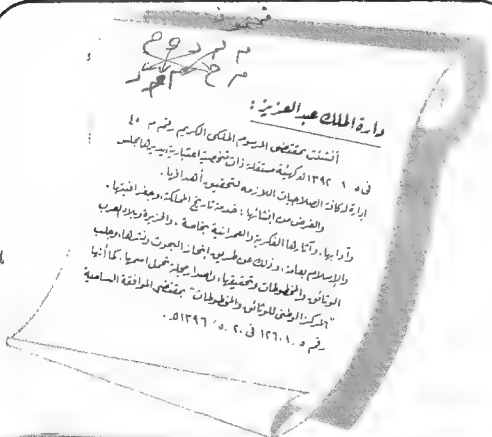 دارة الملك عبد العزيز :
أنشئت بمقتضى المرسوم الملكى الكريم رقم م ٤٥
فى ٥ ١ ١٣٩٢هـ كهيئة مستقلة ذات شخصية اعتبارية يديرها مجلس
إدارة له كافة الصلاحيات اللازمة لتحقيق أهدافها .
والغرض من إنشائها : خدمة تاريخ المملكة ، وجغرافيتها ،
وآدابها ، وآثارها الفكرية والعمرانية بخاصة . والجزيرة وبلاد العرب
والإسلام بعامة ، وذلك عن طريق إنجاز البحوث ونشرها ، وجلب
الوثائق والمخطوطات وتحقيقها ، وإصدار مجلة تحمل اسمها . كما أنها
"المركز الوطنى للوثائق والمخطوطات" بمقتضى الموافقة السامية
رقم ٥ / ١٢٦٠١ فى ٢٠ / ٥ / ١٣٩٦هـ .